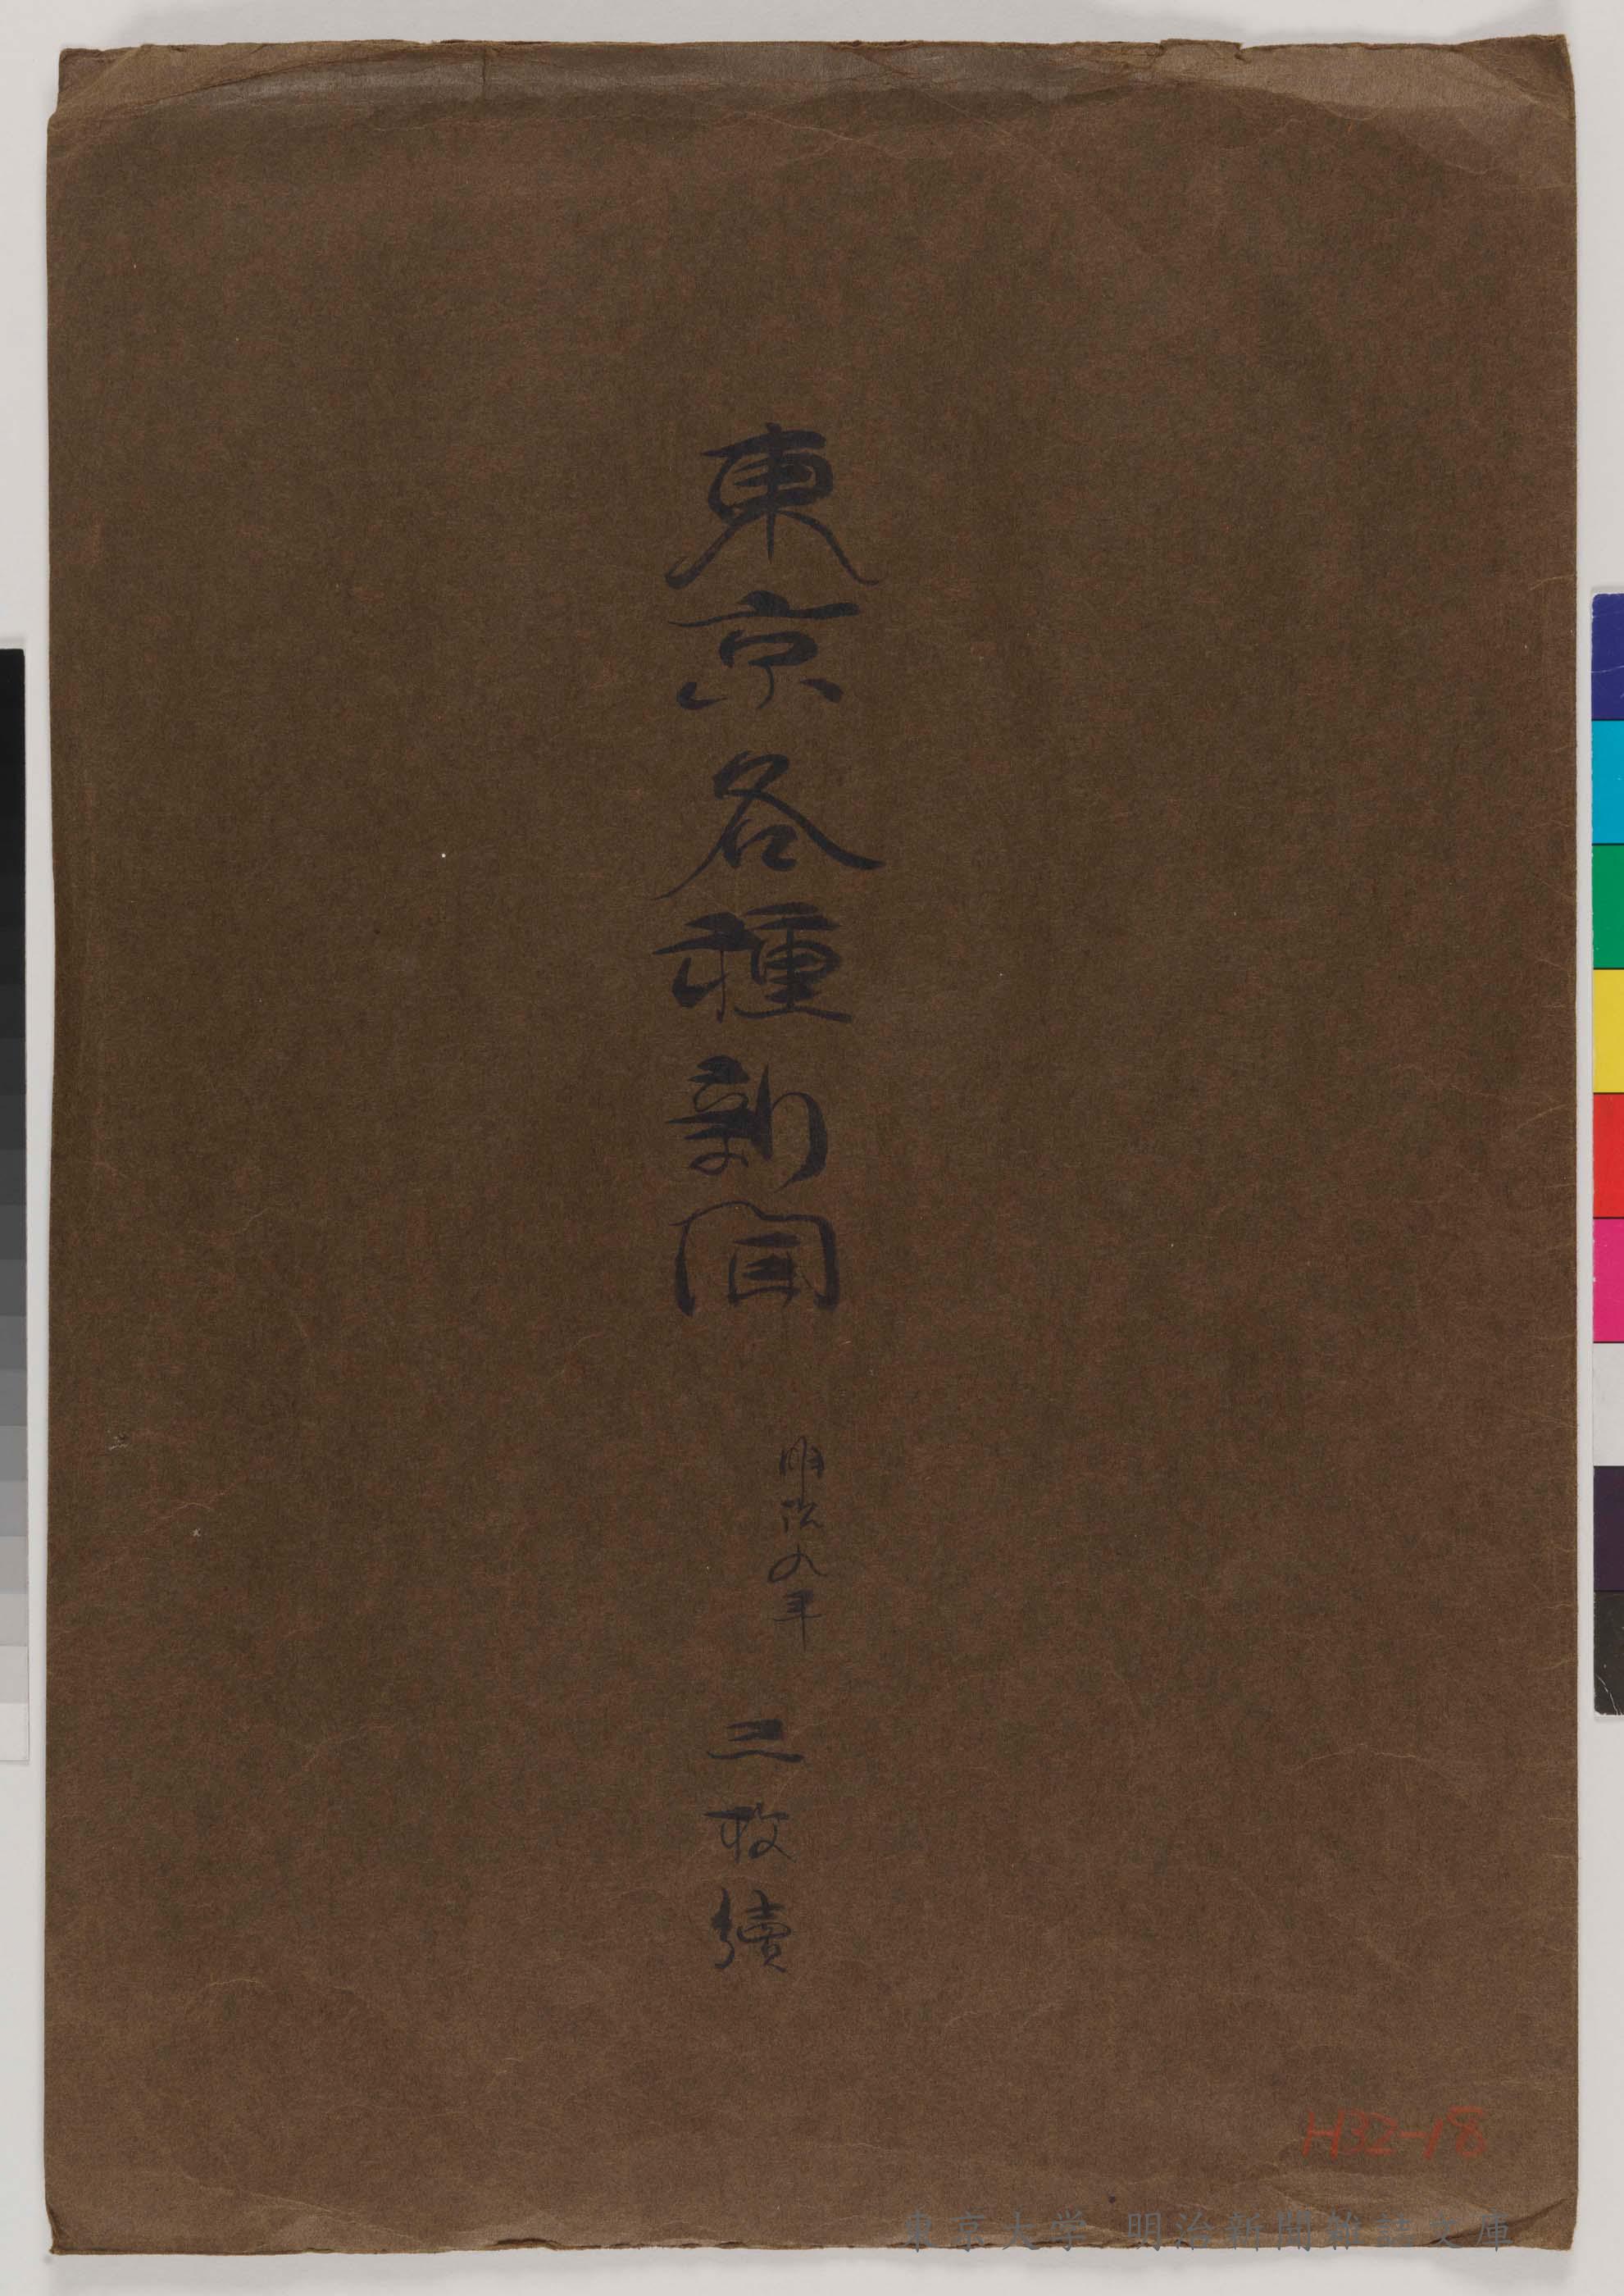 東京各種新聞
明治九年
三枚續
H32-18
東京大学 明治新聞雑誌文庫